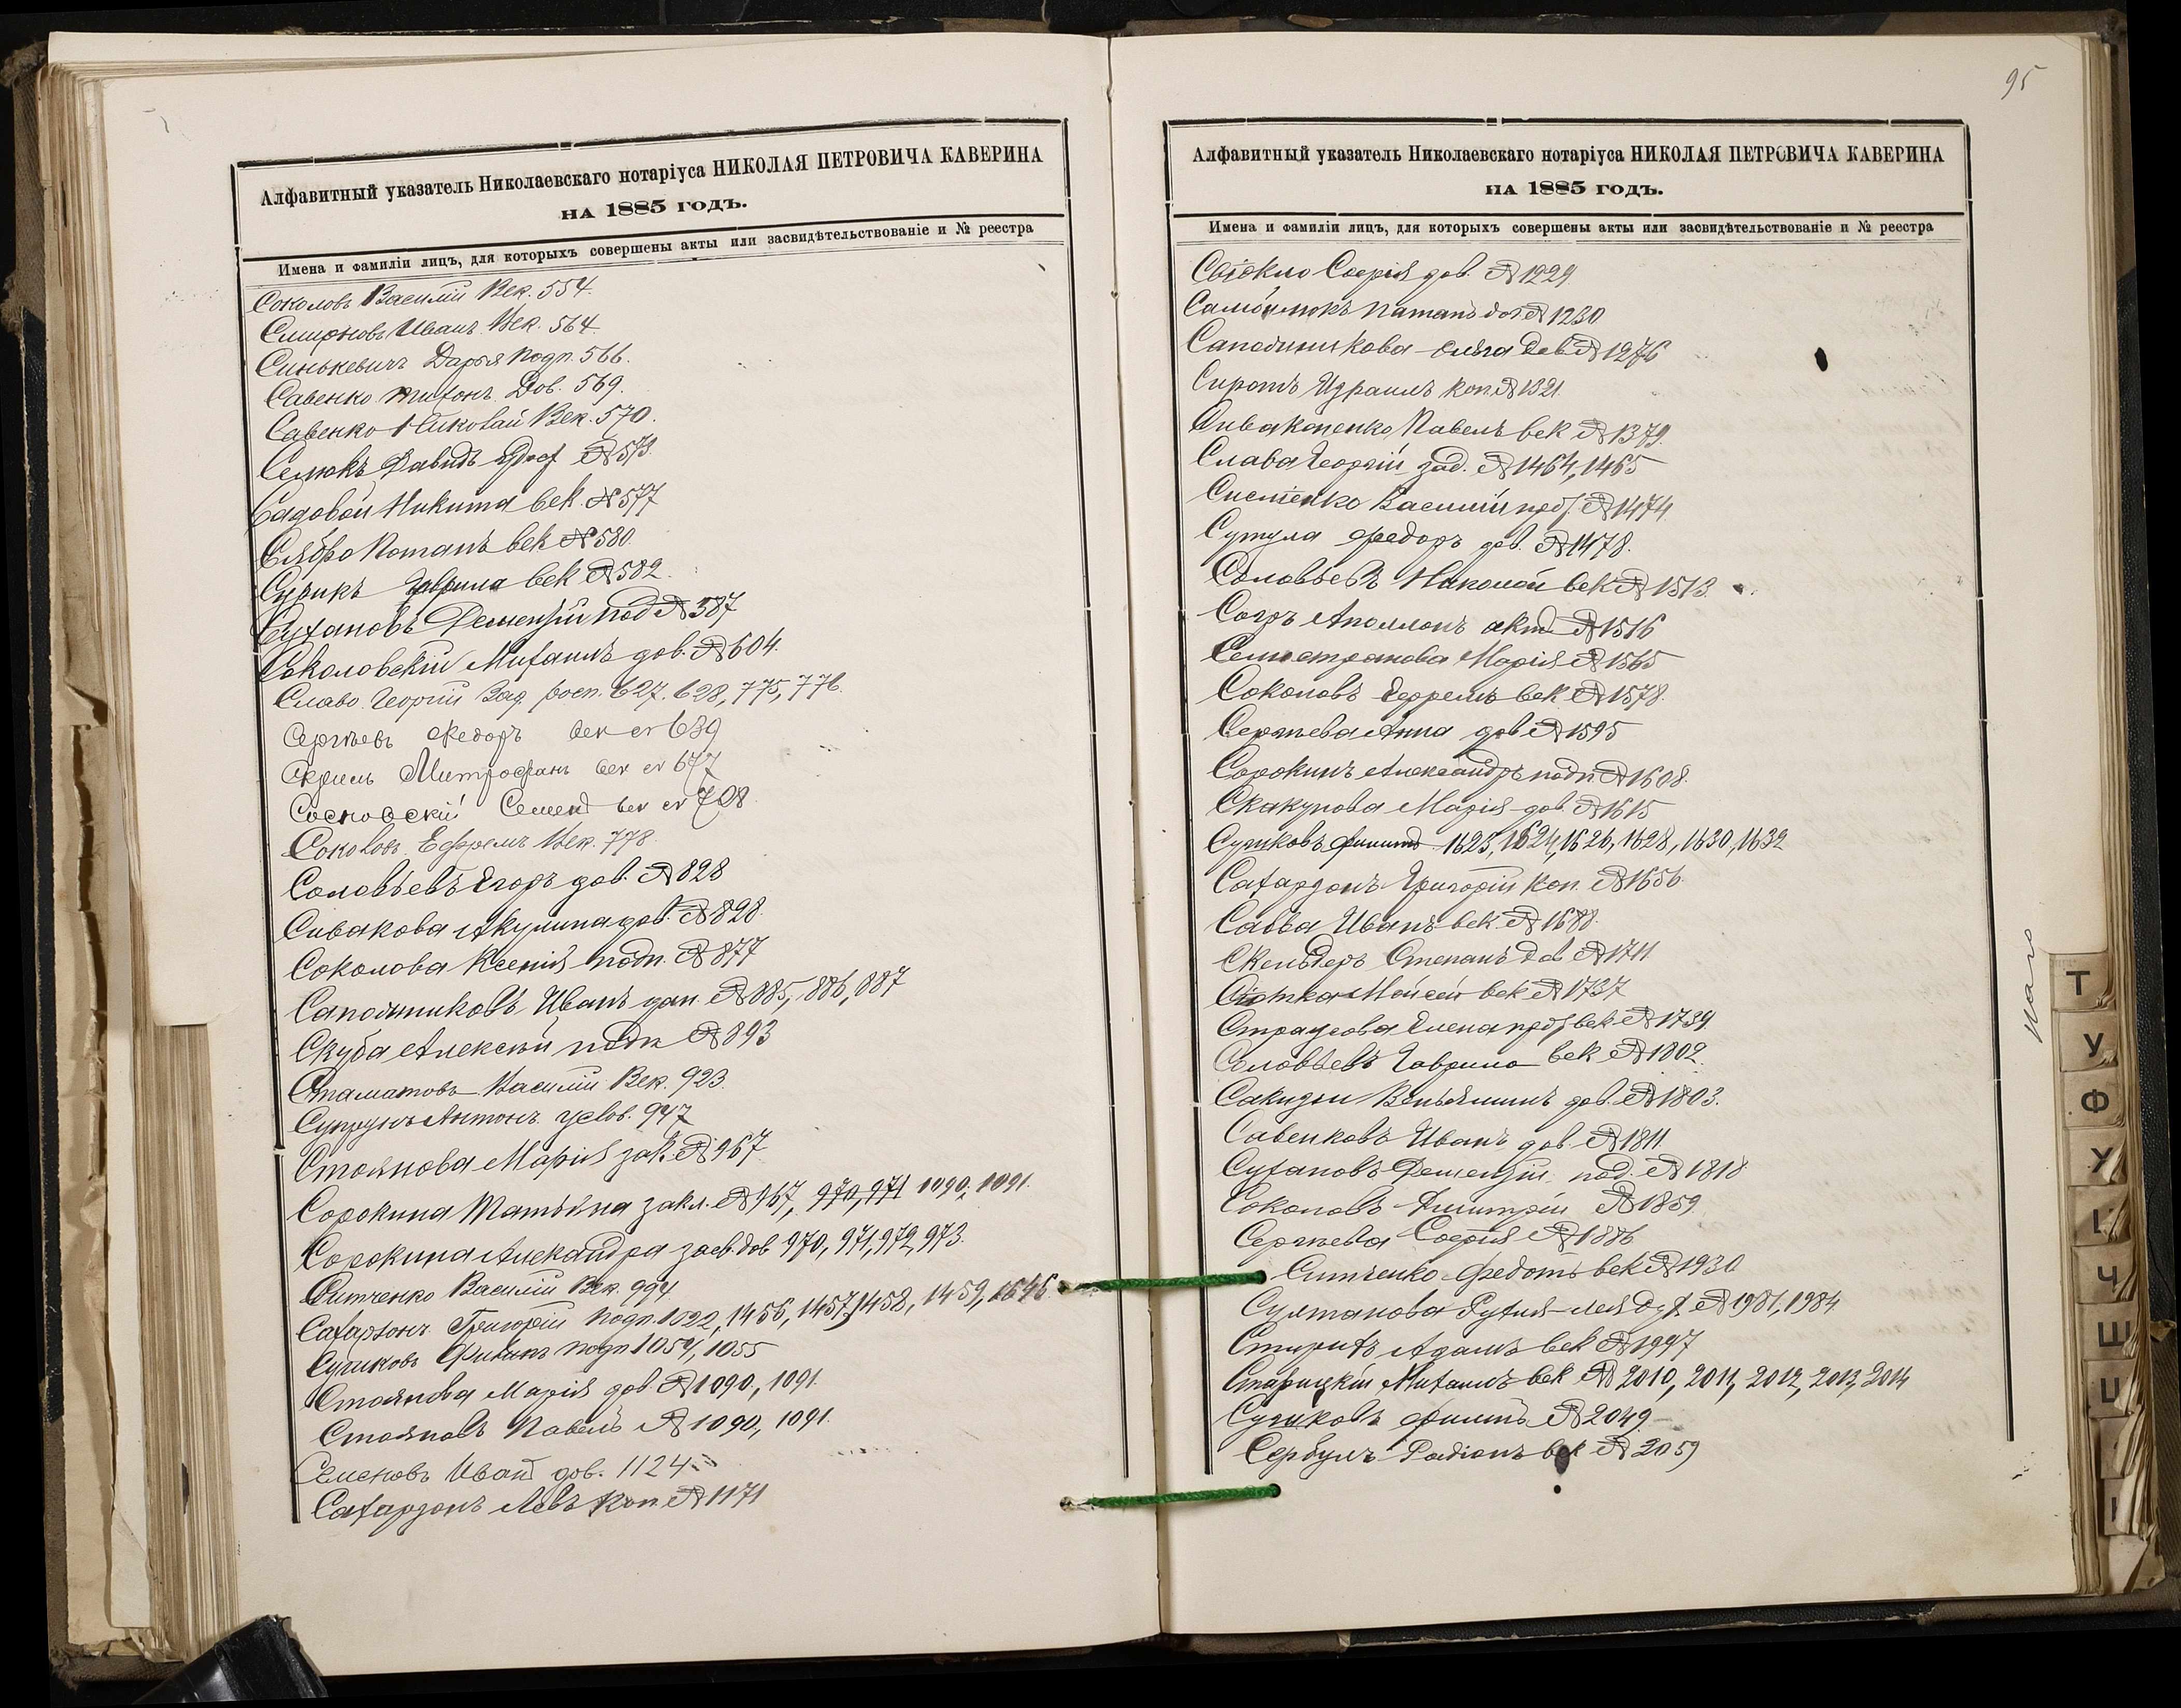 Алфавитный указатель Николаевскаго нотаріуса НИКОЛАЯ ПЕТРОВИЧА КАВЕРИНА
НА 1885 ГОДЪ.
Имена и фамиліи лицъ, для которыхъ совершены акты или засвидѣтельствованіе и № реестра
Соколовъ Василій Век. 554.
Смирновъ Иванъ Век. 564.
Синькевичъ Дарья подп. 566.
Савенко Дов. 569.
Савенко Николай Век. 570.
Селюкъ Давидъ № 573
Садовой Никита век. № 577
Сябро Романъ век № 580
Сурикъ Гаврила век № 582.
Сухановъ Дементій под № 587
Соколовскій Михаилъ дов. № 604.
Славо Георгій Зад. росп. 627. 628, 775, 776.
Сергѣевъ Федоръ век № 639
Скриль Митрофанъ век № 647
Сосновскій Семенъ век № 708
Соколовъ Ефремъ Век. 778
Соловьевъ Егоръ дов. № 828
Сивакова Акулина дов. № 828.
Соколова Ксенія подп. № 877
Сапожниковъ Иванъ дан. № 885, 886, 887
Скуба Алексѣй подп № 893
Стаматовъ Василій Век. 923.
Супрунъ Антонъ услов. 947
Стоянова Марія зак. № 967
Сорокина Татьяна закл. № 967, 970, 971 1090, 1091.
Сорокина Александра засв. дов 970, 971, 972, 973.
Ситченко Василій Век. 994
Сахарзонъ Григорій подп. 1022, 1456, 1457, 1458, 1459, 1646.
Сучковъ Филипъ подп 1054, 1055
Стоянова Марія дов № 1090, 1091.
Стояновъ Павелъ № 1090, 1091.
Семеновъ Иванъ дов. 1124
Сахарзонъ Левъ коп № 1171
95
Алфавитный указатель Николаевскаго нотаріуса НИКОЛАЯ ПЕТРОВИЧА КАВЕРИНА
НА 1885 ГОДЪ.
Имена и фамиліи лицъ, для которыхъ совершены акты или засвидѣтельствованіе и № реестра
Софія дов. № 1229.
Самойлюкъ дов № 1230
Сапожникова Ольга Дов № 1276
Сиротъ Израиль коп. № 1321.
Сиваконенко Павелъ век № 1379.
Слава Георгій зад. № 1464, 1465
Систенко Василій прот. № 1474
Сутула Федоръ дов. № 1478.
Соловьевъ Николай век № 1513.
Согръ Аполлонъ актъ № 1516
Селистранова Марія № 1565
Соколовъ Ефремъ век. № 1578.
Сергѣева Анна дов № 1595
Сорокинъ Александръ подп. № 1608.
Скакунова Марія дов. № 1615
Сучковъ Филипъ 1623, 1624, 1626, 1628, 1630, 1632
Сахарзонъ Григорій коп. № 1656.
Савва Иванъ век. № 1688.
Скельдеръ Степанъ Дов № 1711
Моисей век № 1737
Страусова Елена прот век № 1739.
Соловьевъ Гаврило век № 1802.
Сакизли Веньяминъ дов. № 1803.
Савенковъ Иванъ дов. № 1811.
Сухановъ Дементій под. № 1818
Соколовъ Димитрій № 1859.
Сергѣева Софія № 1886
Ситченко Федотъ век № 1930
Султанова № 1981, 1984
Адамъ век № 1947
Старицкій Михаилъ век № 2010, 2011, 2012, 2013, 2014
Сучковъ Филипъ № 2049
Сербулъ Радіонъ век № 2059
наго
Т
У
Ф
Х
Ц
Ч
Ш
Щ